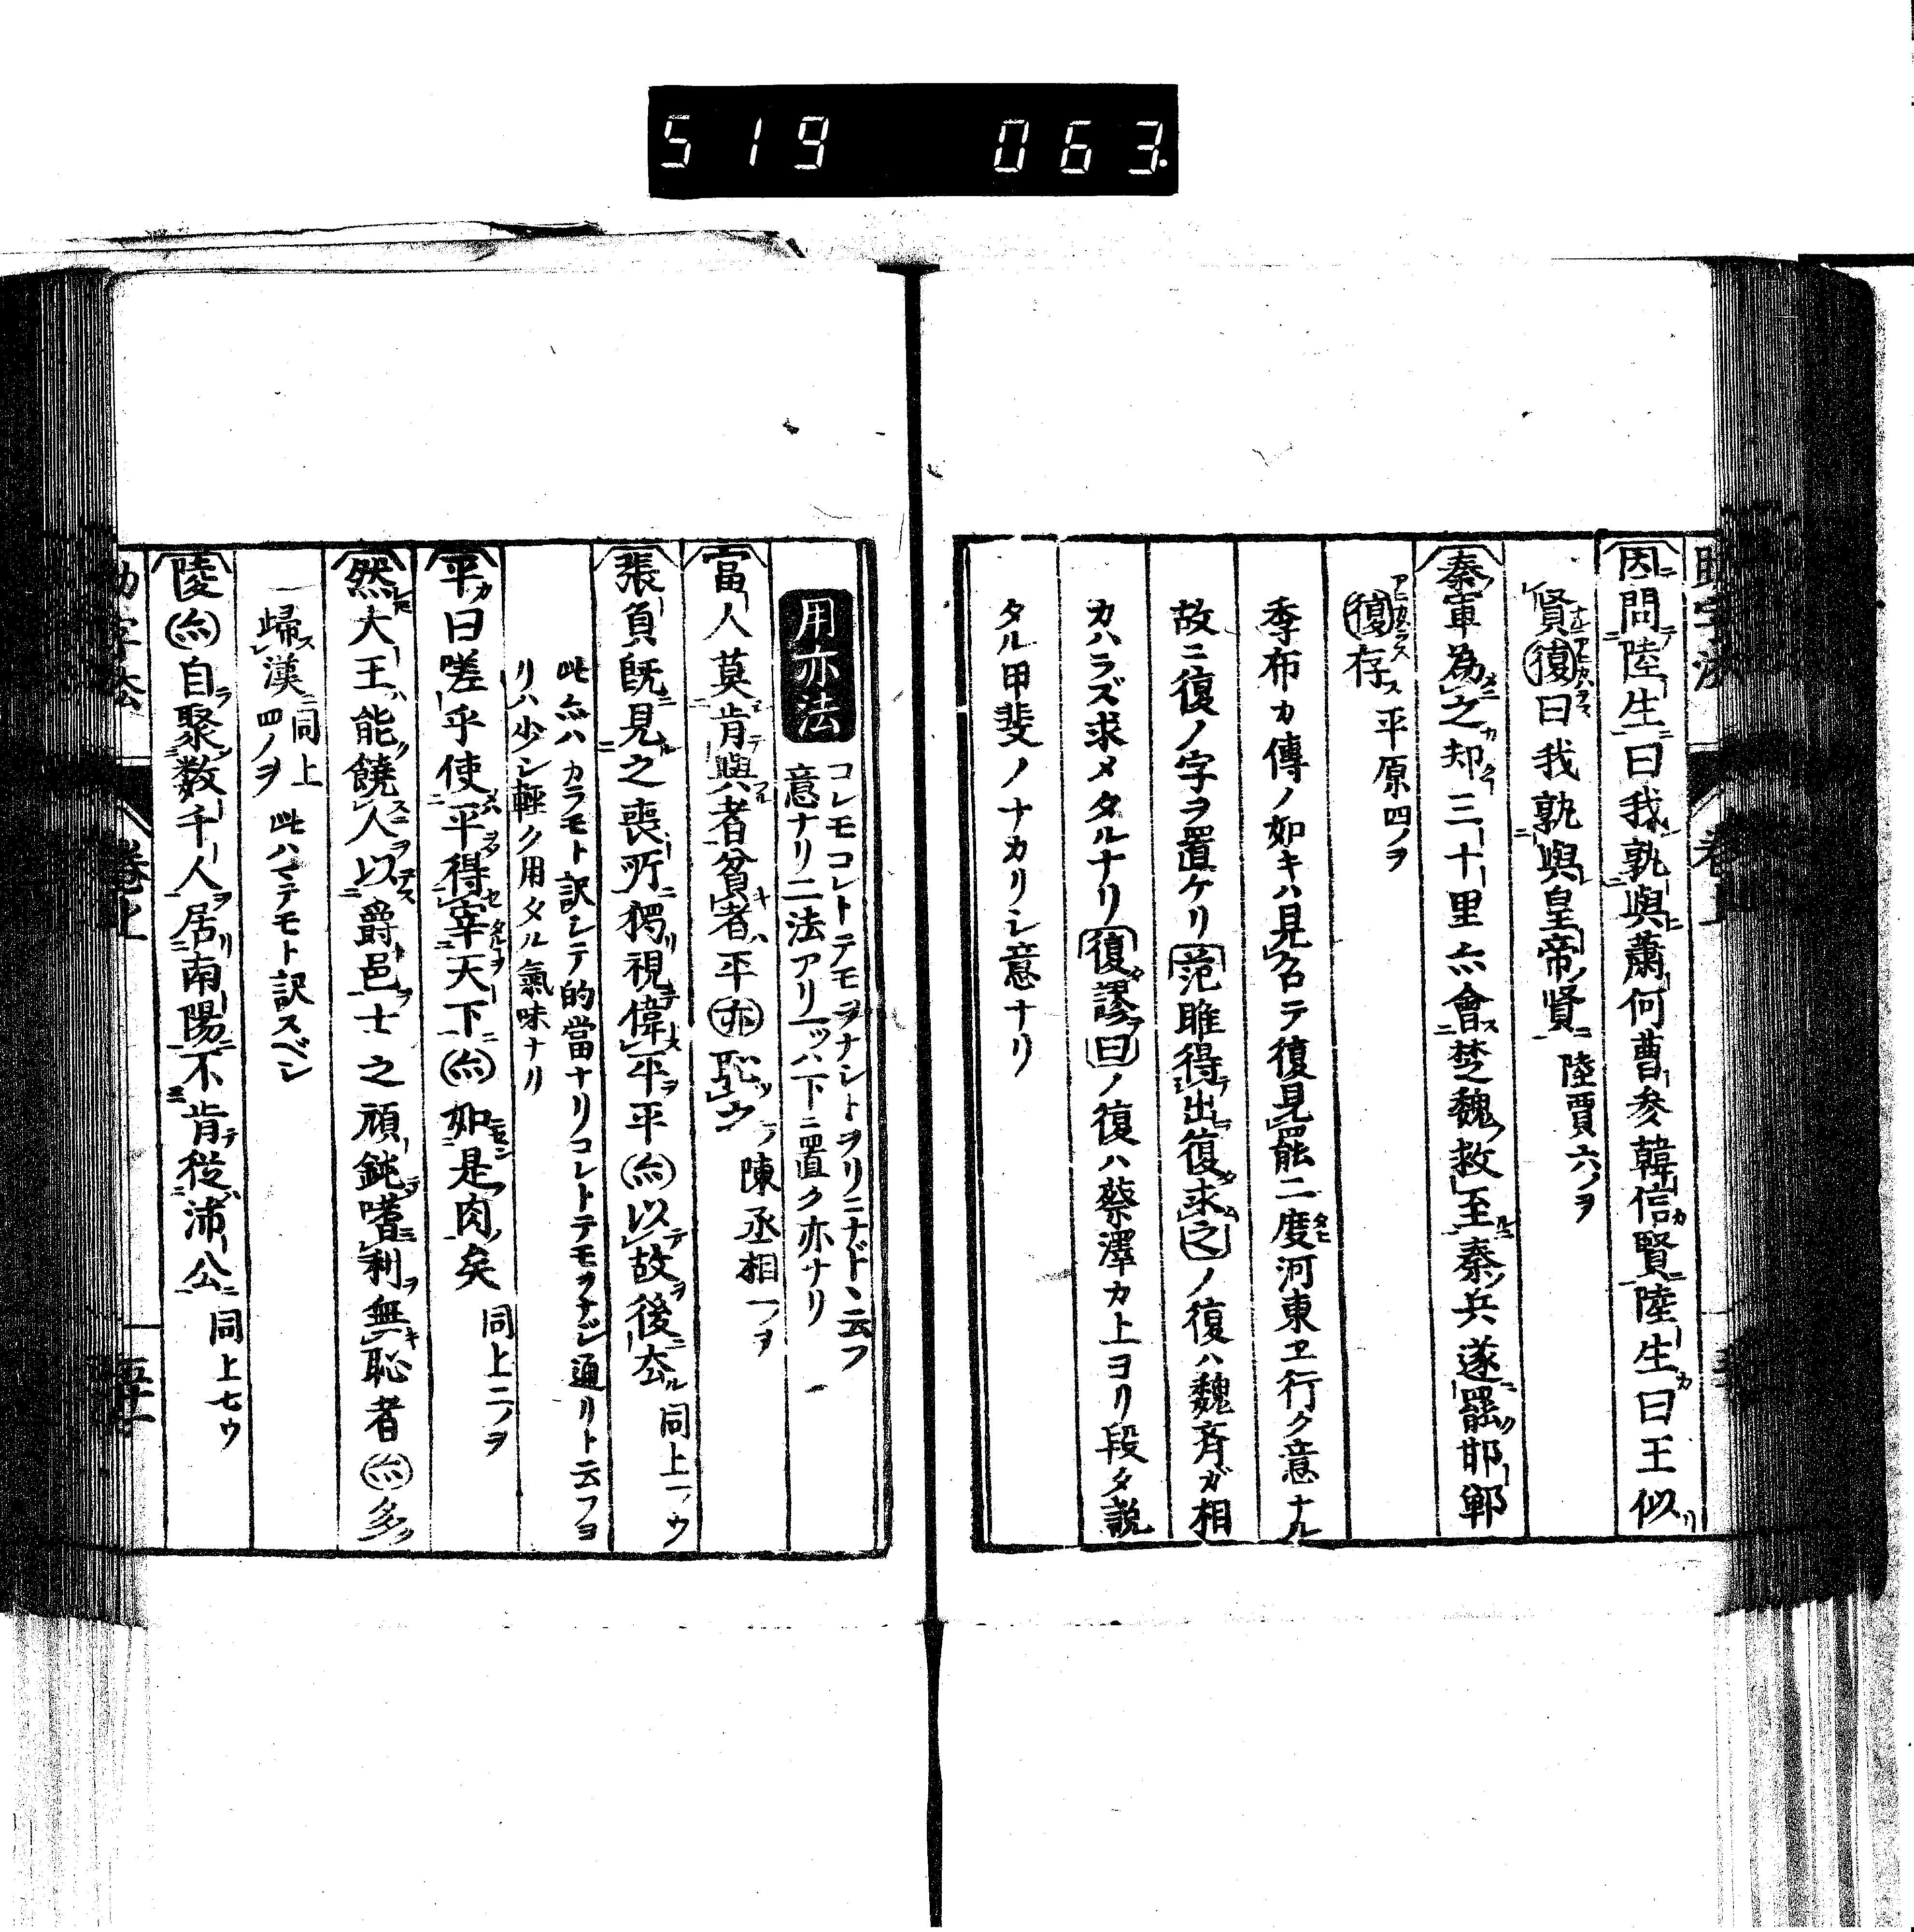 519 063.
因問陸生曰我孰與蕭何曹参韓信賢陸生曰王似
賢復曰我孰與皇帝賢 陸賈六ノヲ
秦軍為之却三十里亦會楚魏救至秦兵遂罷邯鄲
復存 平原四ノヲ
季布カ傳ノ如キハ見名テ復見罷二度河東ヱ行ク意ナル
故ニ復ノ字ヲ置ケリ范雎得出復求之ノ復ハ魏齊ガ相
カハラズ求メタルナリ復謬曰ノ復ハ蔡澤カ上ヨリ段タ説
タル甲斐ノナカリシ意ナリ
用亦法
コレモコレトテモヲナシトヲリニナドヽ云フ
意ナリ二法アリ一ツハ下ニ置ク亦ナリ
富人莫肯與者貧者平亦恥之 陳丞相一ノヲ
張負既見之喪所獨視偉平平亦以故後去 同上一ノウ
此亦ハカラモト訳シテ的當ナリコレトテモヲナジ通リト云フヨ
リハ少シ輕ク用タル氣味ナリ
平曰嗟乎使平得宰天下亦如是肉矣 同上二ノヲ
然大王能饒人以爵邑士之頑鈍嗜利無恥者亦多
歸漢 同上四ノヲ 此ハマテモト訳スベシ
陵亦自聚数千人居南陽不肯從沛公 同上七ウ
卷上